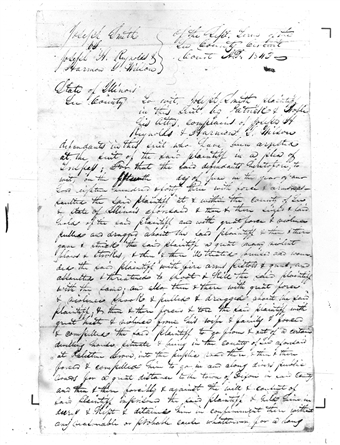 Joseph Smith
vs
Joseph H. Reynolds &
Harmon T. Wilson
Of the Sept. Term of the
Lee County Circuit
Court A.D. 1843
State of Illinois
Lee County To wit, Joseph Smith
in this Suit by Patrick &
his Atty, complains of Joseph H
Reynolds & Harmon T. Wilson
defendants in this suit who have been
at the suit of the said plaintiff in a plea of
Trespass; For that the said defendants heretofore, to
wit on the day of June in the year of our
Lord eighteen hundred & forty three with force &
the said plaintiff at & within the County of Lee
& State of Illinois aforesaid & then & there
the said plaintiff and with great force & violence
pulled and dragged about the said plaintiff & then & there
gave & struck the said plaintiff a great many violent
blows & strokes, & then & there
the said plaintiff with fire arms pistols &
& threatened to shoot & kill the said plaintiff
with the same, and also then & there with great force
& violence & pulled & dragged about the said
plaintiff, & then & there forced & the said plaintiff with
great force & violence from his wife & family & forced
& compelled the said plaintiff to go from & out of a certain
dwelling house situate & being in the County of Lee aforesaid
at Palestine Grove, into the public road there & then & there
forced & compelled him to go in and along divers public
roads for a great distance to the town of Dixon in said County
and then & there forcibly & against the will & consent of
said plaintiff imprisoned the said plaintiff &
& kept & detained him in confinement there without
any reasonable or probable cause whatsoever, for a long